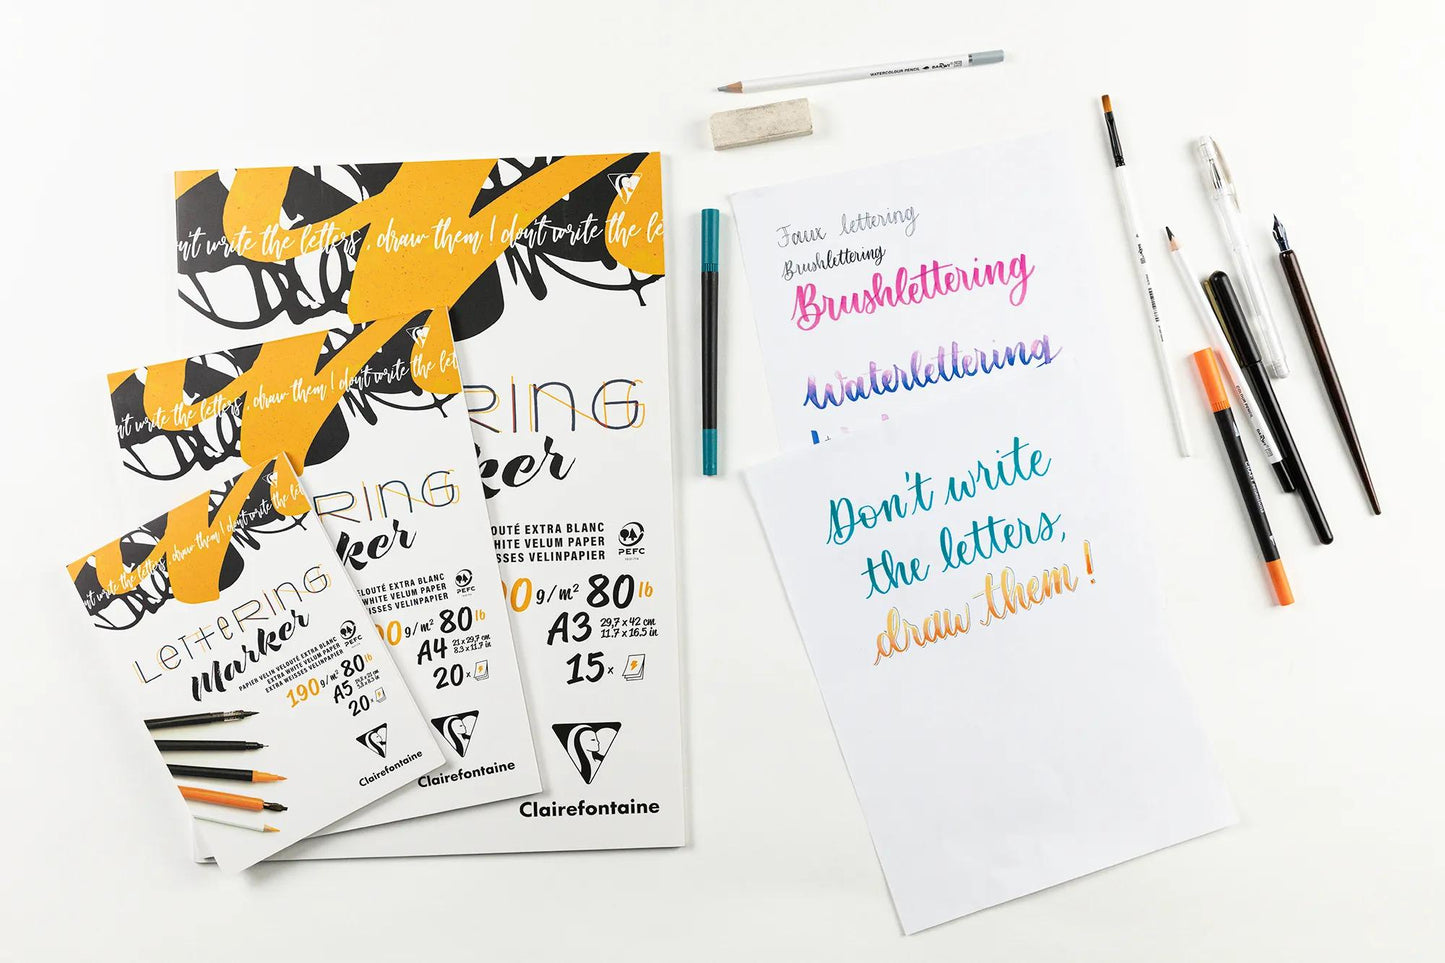 n't write the letters, draw them! don't write the le
RING
ker
OUTÉ EXTRA BLANC
HITE VELUM PAPER
ISSES VELINPAPIER
PEFC
0 g/m² 80 lb
A3 29,7 x 42 cm
11.7 x 16.5 in
15x
Clairefontaine
n't write the letters, draw them! don't write the let
RING
ker
ELOUTÉ EXTRA BLANC
WHITE VELUM PAPER
WEISSES VELINPAPIER
PEFC
90 g/m² 80 lb
A4 21 x 29,7 cm
8.3 x 11.7 in
20x
Clairefontaine
n't write the letters, draw them! don't write the let
LETTERING
Marker
PAPIER VELIN VELOUTÉ EXTRA BLANC
EXTRA WHITE VELUM PAPER
EXTRA WEISSES VELINPAPIER
PEFC
190 g/m² 80 lb
A5 14,8 x 21 cm
5.8 x 8.3 in
20x
Clairefontaine
WATERCOLOUR PENCIL DARWI
Faux lettering
Brushlettering
Brushlettering
Waterlettering
Don't write
the letters,
draw them!